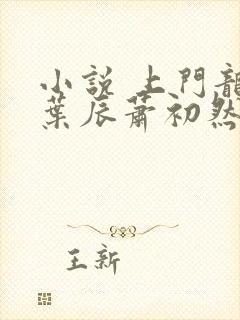 小說 上門龍
葉辰蕭初然
王新